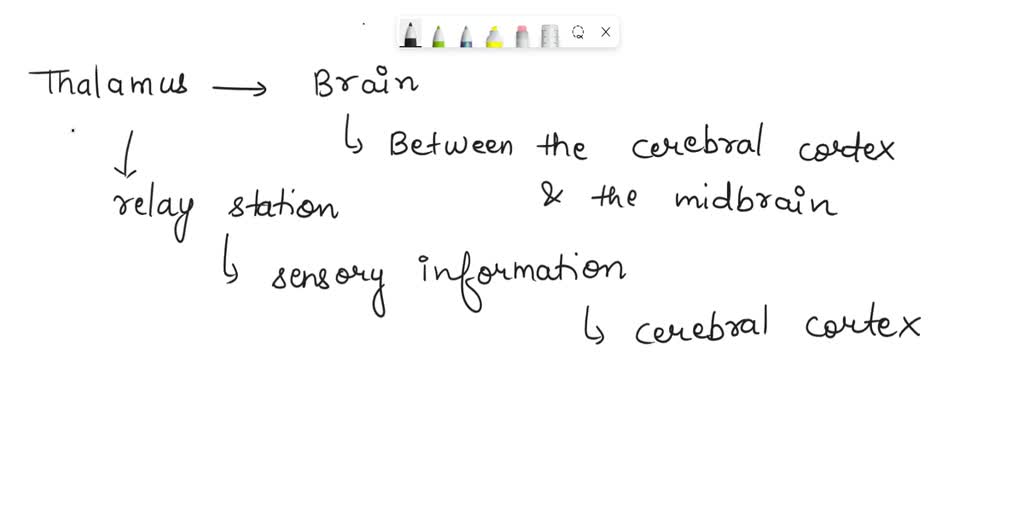 Thalamus → Brain
↳ Between the cerebral cortex
& the midbrain
↓
relay station
↳ sensory information
↳ cerebral cortex